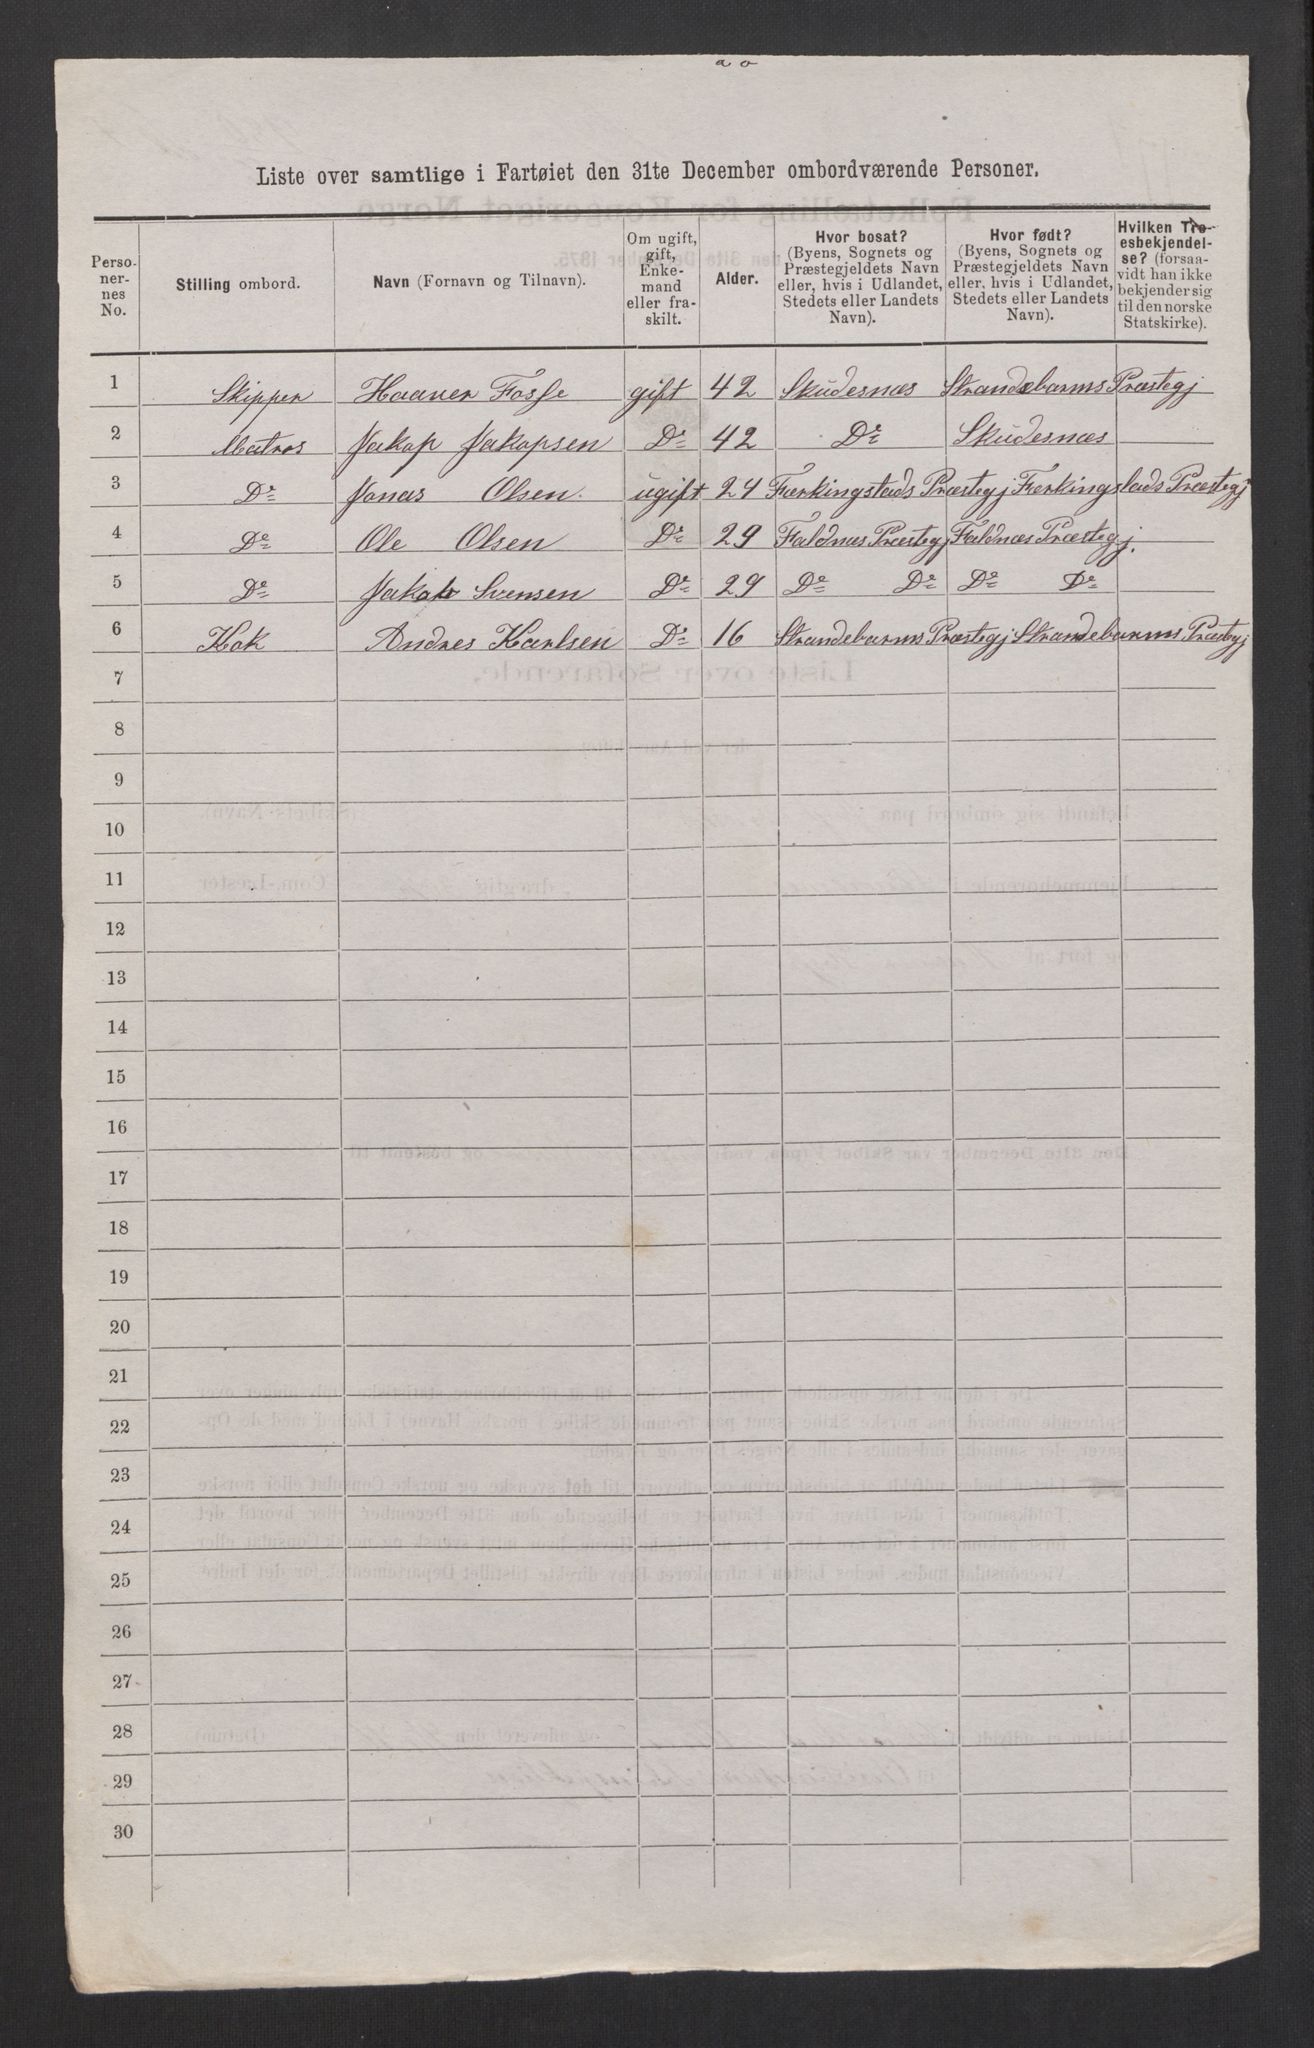 Liste over samtlige i Fartøiet den 31te December ombordværende Personer.
Perso-
ner-
nes
No.
Stilling ombord.
Navn (Fornavn og Tilnavn).
Om ugift,
gift,
Enke-
mand
eller fra-
skilt.
Alder.
Hvor bosat?
(Byens, Sognets og
Præstegjeldets Navn
eller, hvis i Udlandet,
Stedets eller Landets
Navn).
Hvor født?
(Byens, Sognets og
Præstegjeldets Navn
eller, hvis i Udlandet,
Stedets eller Landets
Navn).
Hvilken Tro-
esbekjendel-
se? (forsaa-
vidt han ikke
bekjender sig
til den norske
Statskirke).
1 Skipper Haaver Fosse gift 42 Skudesnæs Strandebarms Præstegj
2 Matros Jakop Jakopsen Do 42 Do Skudesnæs
3 Do Jonas Olsen. ugift 24 Færkingstads Præstegj Færkingstads Præstegj
4 Do Ole Olsen Do 29 Faldnæs Præstegj Faldnæs Præstegj.
5 Do Jakob Svensen Do 29 Do Do Do Do
6 Kok Andres Karlsen Do 16 Strandebarms Præstegj Strandebarms Præstegj
7
8
9
10
11
12
13
14
15
16
17
18
19
20
21
22
23
24
25
26
27
28
29
30